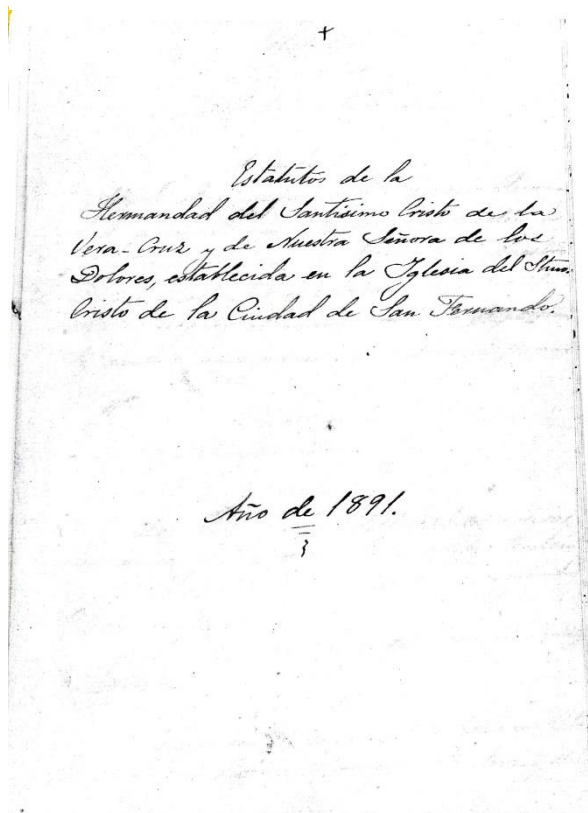 +
Estatutos de la
Hermandad del Santisimo Cristo de la
Vera-Cruz y de Nuestra Señora de los
Dolores, establecida en la Iglesia del Stmo.
Cristo de la Ciudad de San Fernando.
Año de 1891.